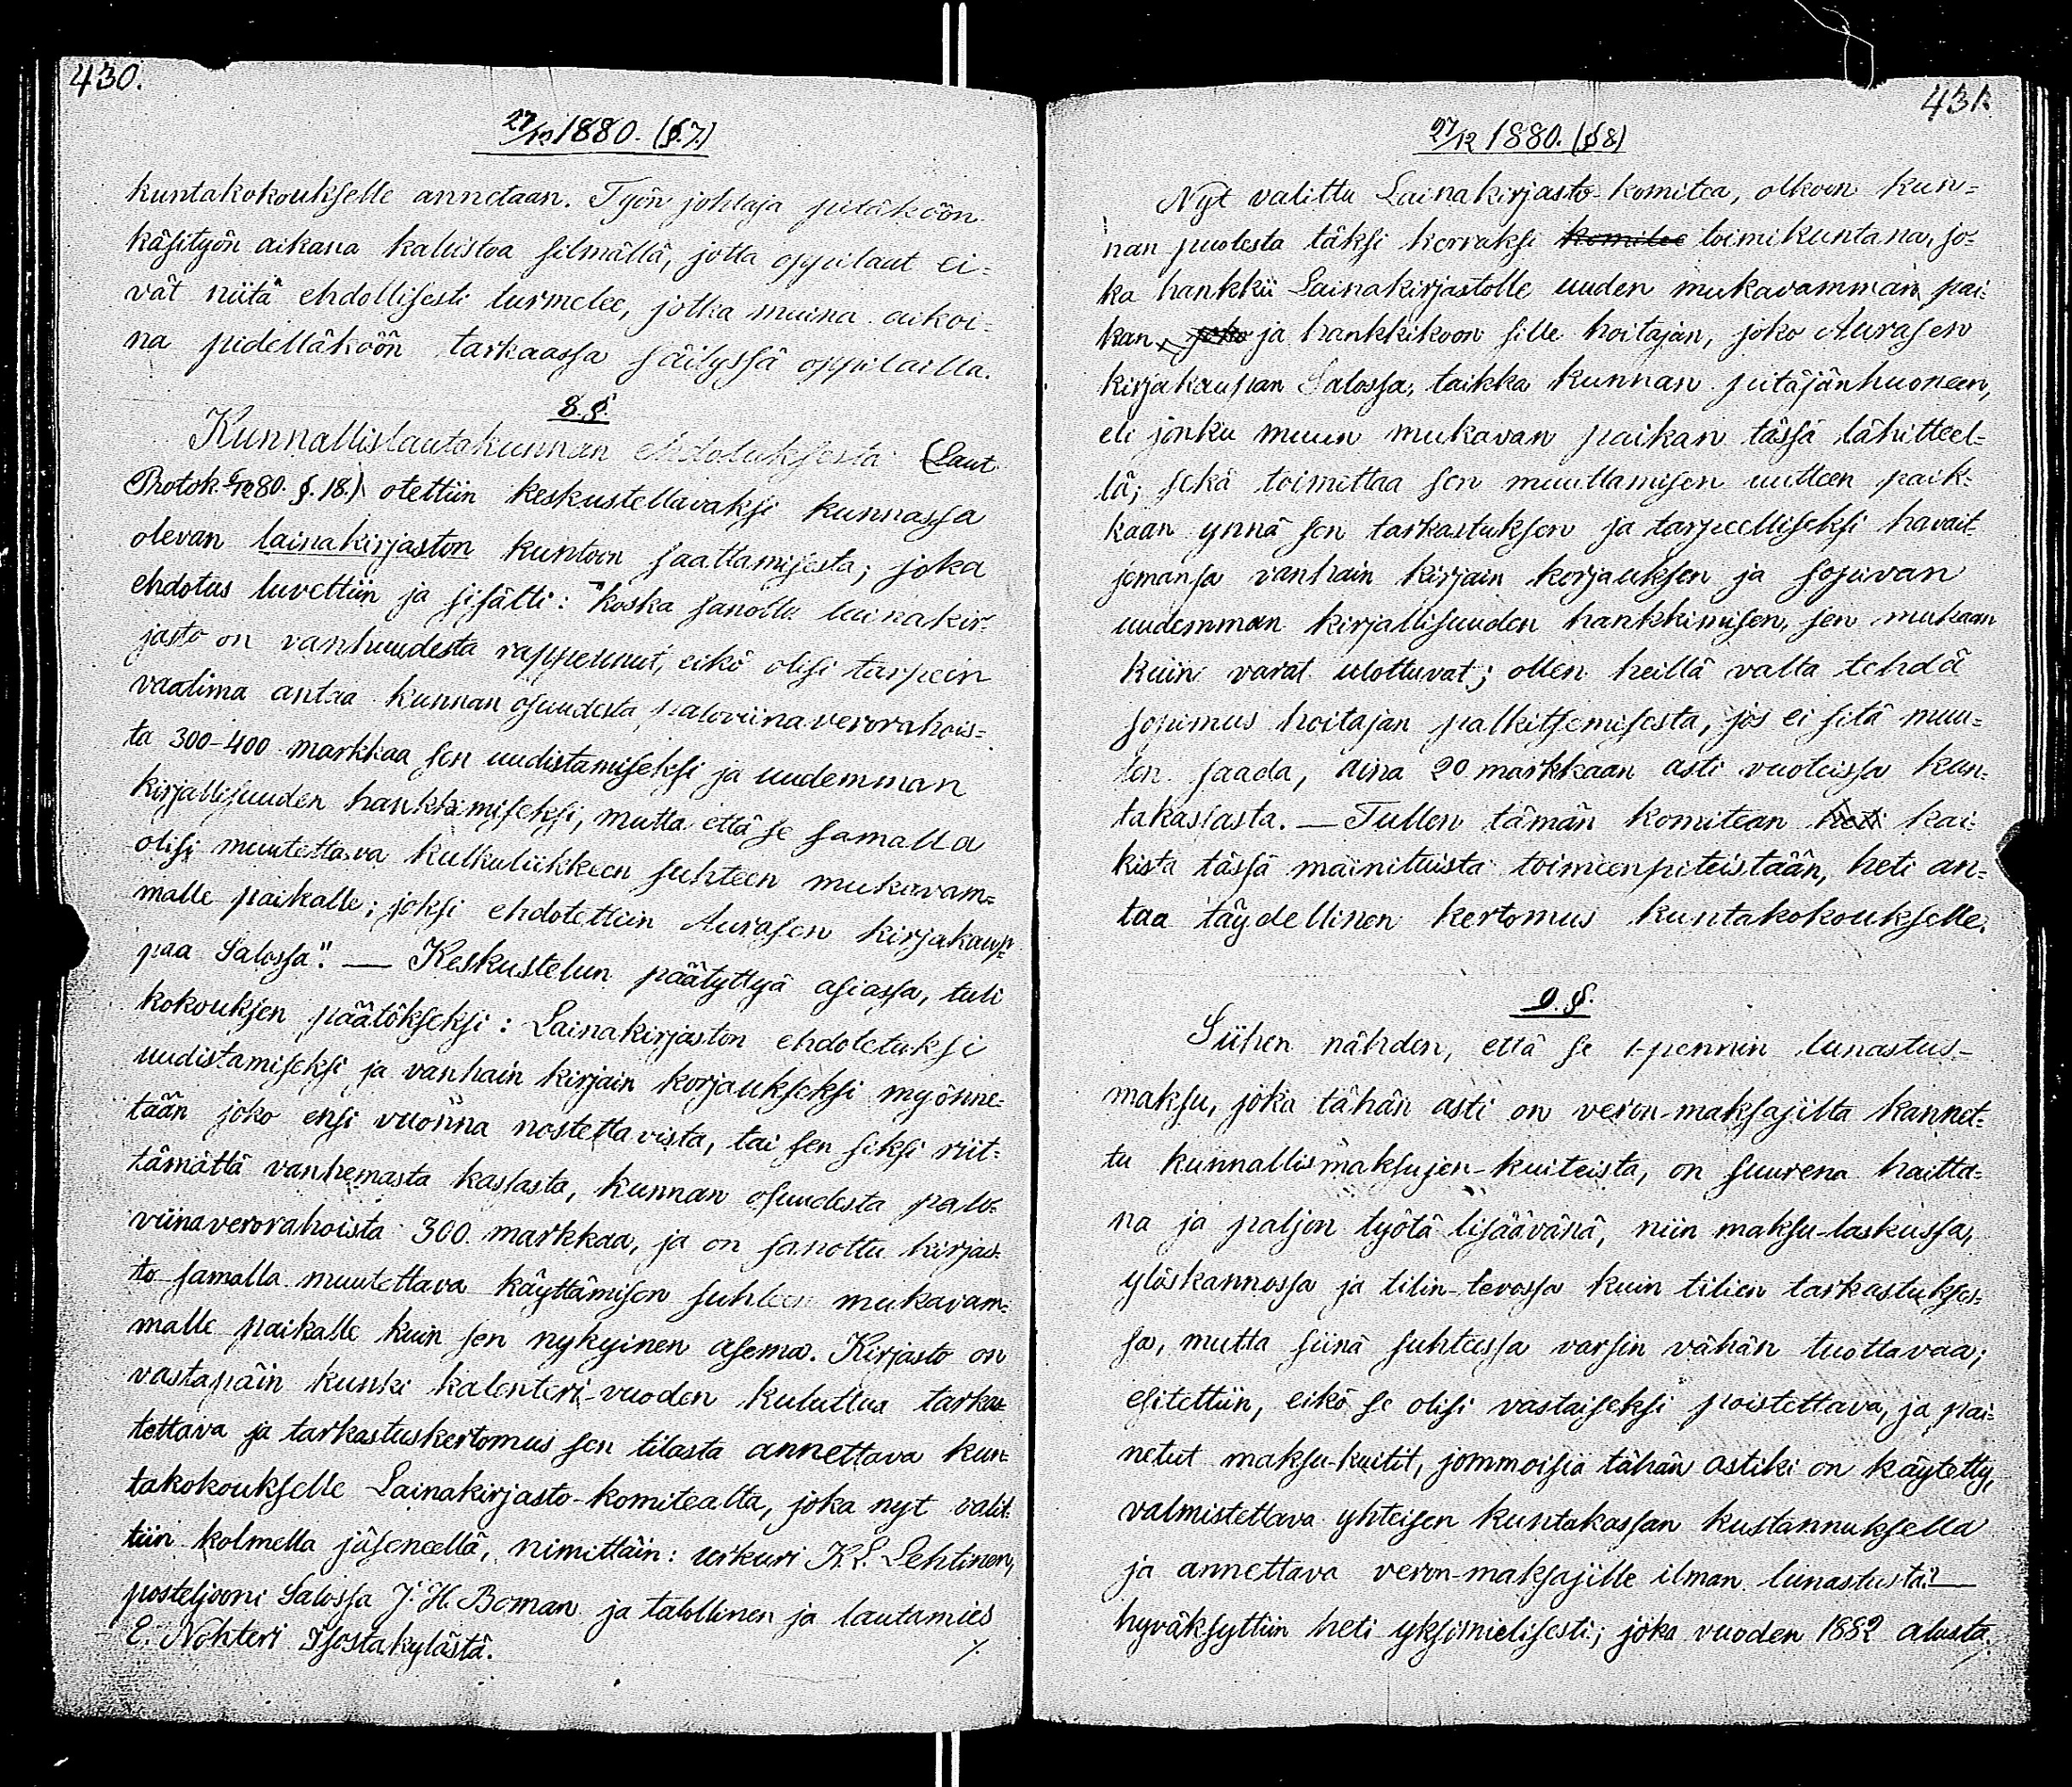 430.
27/12 1880. (§.7.)
kuntakokoukselle annetaan. Työn johtaja pitäköön
käsityön aikana kalustoa silmällä, jotta oppilaat ei=
vät niitä ehdollisesti turmelee, jotka muina aikoi=
na pidelläköön tarkaassa säilyssä oppilailla.
8.§.
Kunnallislautakunnan ehdotuksesta (Laut.
Protok. /12 80. §.18.) otettiin keskustellavaksi kunnassa
olevan lainakirjaston kuntoon saattamisesta; joka
ehdotus luvettiin ja sisälti: "koska sanottu lainakir=
jasto on vanhuudesta rappeunut, eikö olisi tarpein
vaatima antaa kunnan osuudesta paloviinaverorahois=
ta 300-400 markkaa sen uudistamiseksi ja uudemman
kirjallisuuden hankkimiseksi, mutta että se samalla
olisi muutettava kulkuliikkeen suhteen mukavam=
malle paikalle; joksi ehdotettiin Aurasen kirjakaup=
paa Salossa". — Keskustelun päätyttyä asiassa, tuli
kokouksen päätökseksi: Lainakirjaston ehdotetuksi
uudistamiseksi ja vanhain kirjain korjaukseksi myönne=
tään joko ensi vuonna nostettavista, tai sen siksi riit=
tämättä vanhemasta kassasta, kunnan osuudesta palo=
viinaverorahoista 300 markkaa, ja on sanottu kirjas=
to samalla muutettava käyttämisen suhteen mukavam=
malle paikalle kuin sen nykyinen asema. Kirjasto on
vastapäin kunki kalenteri-vuoden kuluttua tarkas
tettava ja tarkastuskertomus sen tilasta annettava kun=
takokoukselle Lainakirjasto-komitealta, joka nyt valit=
tiin kolmella jäseneellä, nimittäin: urkuri K.L. Lehtinen,
posteljooni Salossa J. H. Boman ja talollinen ja lautamies
E. Nohteri Isostakylästä. ./.
431.
27/12 1880. (§8)
Nyt valittu Lainakirjasto-komitea, olkoon kun=
nan puolesta täksi kerraksi komitee toimikuntana, jo=
ka hankkii Lainakirjastolle uuden mukavamman pai=
kan, joko ja hankkikoon sille hoitajan, joko Aurasen
kirjakaupan Salossa, taikka kunnan pitäjänhuoneen,
eli jonku muun mukavan paikan tässä lähitteel=
lä; sekä toimittaa sen muuttamisen uutteen paik=
kaan ynnä sen tarkastuksen ja tarpeelliseksi havait
semansa vanhain kirjain korjauksen ja sopivan
uudemman kirjallisuuden hankkimisen, sen mukaan
kuin varat ulottuvat; ollen heillä valta tehdä
sopimus hoitajan palkitsemisesta, jos ei sitä muu=
ten saada, aina 20 markkaan asti vuoteissa kun=
takassasta. — Tullen tämän komitean heti kai=
kista tässä mainituista toimeenpiteistään, heti an=
taa täydellinen kertomus kuntakokoukselle.
9.§.
Siihen nähden, että se 1-pennin lunastus-
maksu, joka tähän asti on veron-maksajilta kannet=
tu kunnallismaksujen-kuiteista, on suurena haitta=
na ja paljon työtä lisäävänä, niin maksu-laskussa,
ylöskannossa ja tilin-tevossa kuin tilien tarkastukses=
sa, mutta siinä suhteessa varsin vähän tuottavaa;
esitettiin, eikö se olisi vastaiseksi poistettava, ja pai=
netut maksu-kuitit, jommoisia tähän astiki on käytetty,
valmistettava yhteisen kuntakassan kustannuksella
ja annettava veron-maksajille ilman lunastusta". —
hyväksyttiin heti yksimielisesti; joka vuoden 1882 alusta